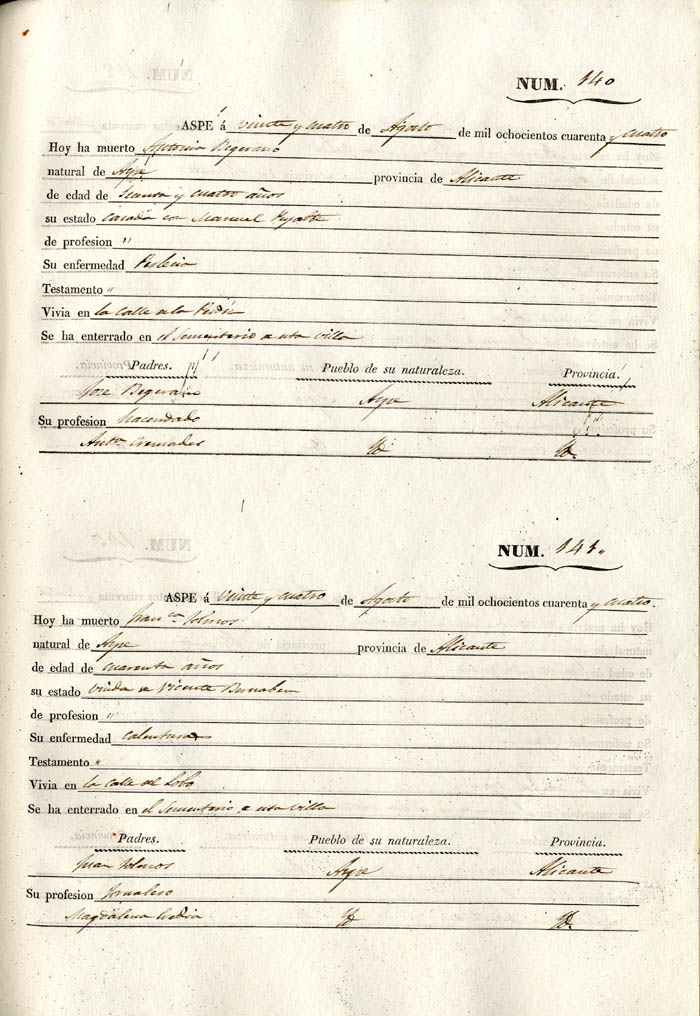 NUM. 140
ASPE á veinte y cuatro de Agosto de mil ochocientos cuarenta y cuatro
Hoy ha muerto Antonia Begerano
natural de Aspe provincia de Alicante
de edad de y cuatro años
su estado casada con Manuel
de profesion "
Su enfermedad
Testamento "
Vivia en la calle
Se ha enterrado en el Sementerio villa
Padres. Pueblo de su naturaleza. Provincia.
Jose Aspe Alicante
Su profesion hacendado
Antª Cremades Id Id.
NUM. 141.
ASPE á veinte y cuatro de Agosto de mil ochocientos cuarenta y cuatro.
Hoy ha muerto Franca
natural de Aspe provincia de Alicante
de edad de cuarenta años
su estado viuda Vicente
de profesion "
Su enfermedad calenturas
Testamento "
Vivia en la calle del Lobo
Se ha enterrado en el Sementario villa
Padres. Pueblo de su naturaleza. Provincia.
Juan Aspe Alicante
Su profesion Jornalero
Magdalena Id Id.